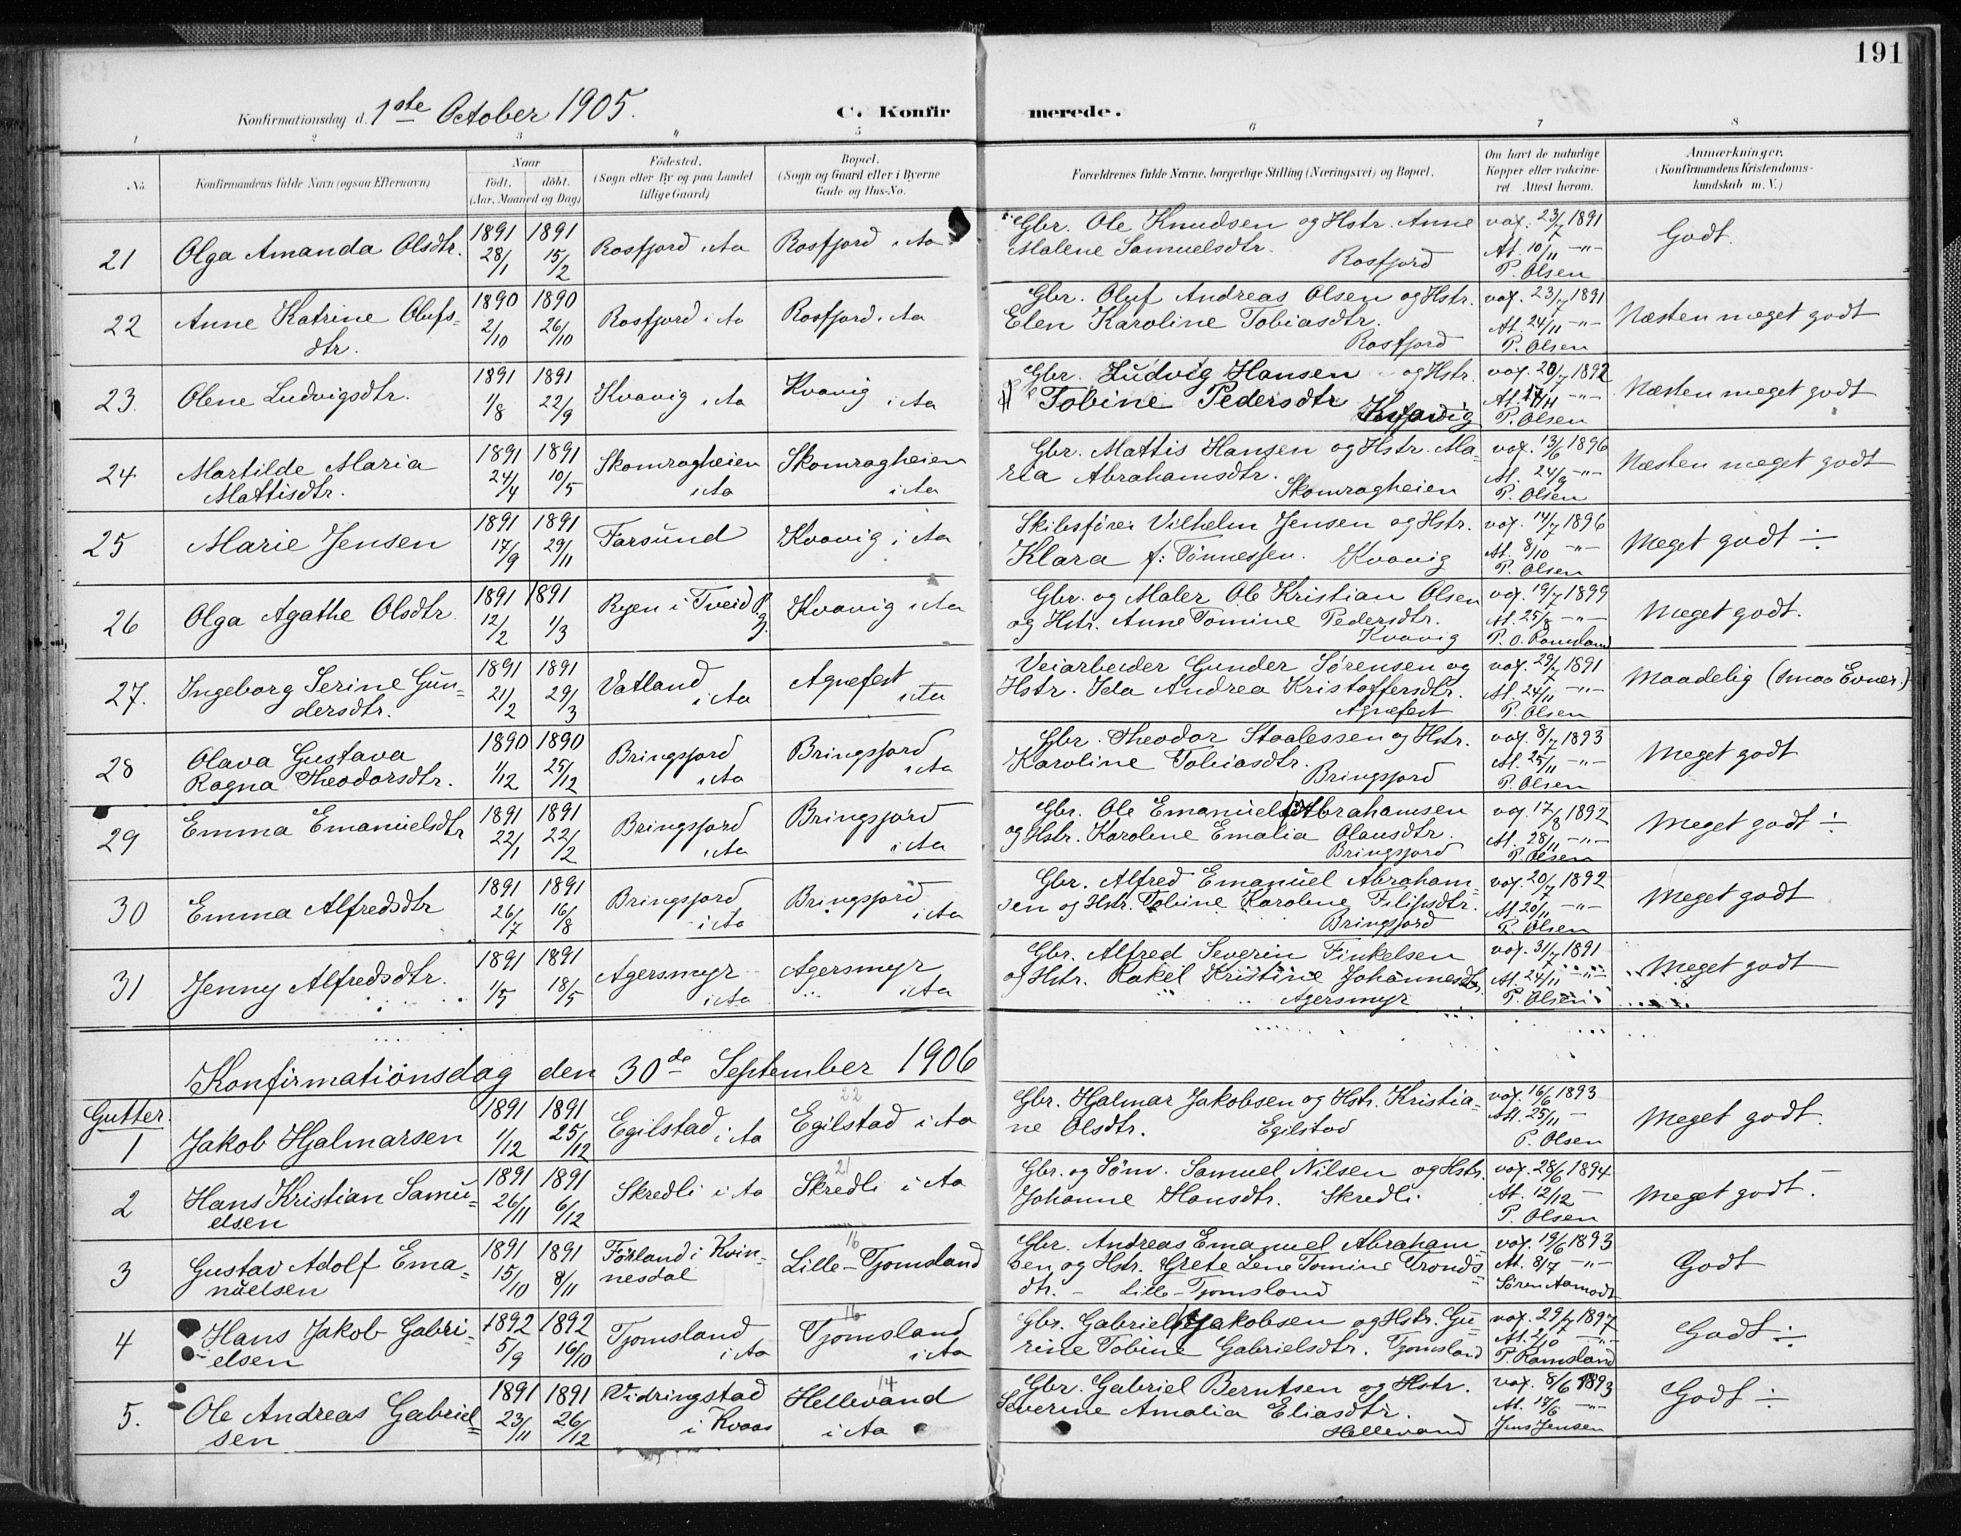 191
Konfirmationsdag d. 1ste October 1905.
C. Konfirmerede.
1 2 3 " 5 6 7 8
No.
Konfirmandens fulde Navn (ogsaa Efternavn)
Naar
født. døbt.
(Aar, Maaned og Dag)
Fødested.
(Sogn eller By og paa Landet
tillige Gaard)
Bopæl.
(Sogn og Gaard eller i Byerne
Gade og Hus-No.
Forældrenes fulde Navne, borgerlige Stilling (Næringsvei) og Bopæl.
Om havt de naturlige
Kopper eller vaccineret.
Attest herom.
Anmærkninger.
(Konfirmandens Kristendomskundskab m. V.)
21 Olga Amanda Olsdtr. 1891 28/1 1891 15/2 Rosfjord i Aa Rosfjord i Aa
Gbr. Ole Knudsen og Hstr. Anne
Malene Samuelsdtr. Rosfjord
vax. 23/7 1891
At. 10/11 -"-
P. Olsen
Godt.
22 Anne Katrine Olufs-
dtr. 1890 2/10 1890 26/10 Rosfjord i Aa Rosfjord i Aa
Gbr. Oluf Andreas Olsen og Hstr.
Elen Karoline Tobiasdtr.
Rosfjord
vax. 23/7 1891
At. 24/11 -"-
P. Olsen
Næsten meget godt
23 Olene Ludvigsdtr. 1891 1/8 1891 22/9 Kvavig i Aa Kvavig i Aa
Gbr. Ludvig Hansen og Hstr.
Tobine Pedersdtr Kvavig
vax. 20/7 1892
At. 17/11 -"-
P. Olsen
Næsten meget godt
24 Martilde Maria
Mattisdtr. 1891 24/4 1891 10/5 Skomragheien i Aa Skomragheien i Aa
Gbr. Mattis Hansen og Hstr. Ma-
ria Abrahamsdtr. Skomragheien
vax. 13/6 1896
At. 24/9 -"-
P. Olsen
Næsten meget godt
25 Marie Jensen 1891 17/9 1891 29/11 Farsund Kvavig i Aa
Skibsfører Vilhelm Jensen og Hstr.
Klara f: Tønnessen. Kvavig
vax. 14/7 1896
At. 8/10 -"-
P. Olsen
Meget godt ÷
26 Olga Agathe Olsdtr. 1891 12/2 1891 1/3 Ryen i Tveid Kvavig i Aa
Gbr. og Maler Ole Kristian Olsen
og Hstr. Anne Tomine Pedersdtr.
Kvavig
vax. 19/7 1899
At. 25/8 -"-
P. O. Ramsland
Meget godt.
27. Ingeborg Serine Gun-
dersdtr. 1891 21/2 1891 29/3 Vatland i Aa Agnefest i Aa
Veiarbeider Gunder Sørensen og
Hstr. Ida Andrea Kristoffersdtr.
Agnefest
vax. 29/7 1891
At. 24/11 -"-
P. Olsen
Maadelig (smaa Evner.)
28 Olava Gustava
Ragna Theodorsdtr. 1890 1/12 1890 25/12 Bringsjord i Aa Bringsjord i Aa
Gbr. Theodor Staalessen og Hstr.
Karoline Tobiasdtr.
Bringsjord
vax. 8/7 1893
At. 25/11 -"-
P. Olsen
Meget godt
29 Emma Emanuelsdtr 1891 22/1 1891 22/2 Bringsjord i Aa Bringsjord i Aa
Gbr. Ole Emanuel Abrahamsen
og Hstr. Karoline Emalia Olausdtr.
Bringsjord
vax. 17/8 1892
At. 28/11 -"-
P. Olsen
Meget godt ÷
30 Emma Alfredsdtr 1891 26/7 1891 16/8 Bringsjord i Aa Bringsjord i Aa
Gbr. Alfred Emanuel Abraham-
sen og Hstr. Tobine Karoline Filipsdtr.
Bringsjord
vax. 20/7 1892
At. 20/11 -"-
P. Olsen
Meget godt
31 Jenny Alfredsdtr. 1891 1/5 1891 18/5 Agersmyr i Aa Agersmyr i Aa
Gbr. Alfred Severin Finkelsen
og Hstr. Rakel Kristine Johannesdtr.
Agersmyr
vax. 31/7 1891
At. 24/11 -"-
P. Olsen
Meget godt
Konfirmationsdag den 30de September 1906
Gutter.
1 Jakob Hjalmarsen 1891 1/12 1891 25/12 Egilstad i Aa Egilstad i Aa 22
Gbr. Hjalmar Jakobsen og Hstr. Kristia-
ne Olsdtr. Egilstad
vax. 16/6 1893
Att. 25/11 -
P. Olsen
Meget godt.
2 Hans Kristian Samu-
elsen 1891 26/11 1891 6/12 Skredli i Aa Skredli i Aa 21
Gbr. og Tøm. Samuel Nilsen og Hstr.
Johanne Hansdtr. Skredli
vax. 28/6 1894
At. 12/12 -
P. Olsen
Meget godt.
3 Gustav Adolf Ema-
nuelsen 1891 15/10 1891 8/11 Førland i Kvin-
nesdal Lille-Tjomsland 16
Gbr. Andreas Emanuel Abraham-
sen og Hstr. Grete Lene Tomine Tronds-
dtr. - Lille-Tjomsland
vax. 19/6 1893
At. 8/7 -"-
Søren Aamodt
Godt
4 Hans Jakob Gabri-
elsen 1892 5/9 1892 16/10 Tjomsland i Aa Tjomsland i Aa 16
Gbr. Gabriel Jakobsen og Hstr. Gu-
rine Tobine Gabrielsdtr. Tjomsland
vax. 29/7 1897
At. 2/10 -"-
P. Ramsland
Godt ÷
5. Ole Andreas Gabriel-
sen 1891 23/11 1891 26/12 Vidringstad
i Kvaas Hellevand
i Aa 14
Gbr. Gabriel Berntsen og Hstr.
Severine Amalia Eliasdtr.
Hellevand
vax. 8/6 1893
At. 14/6 -"-
Jens Jensen
Godt ÷